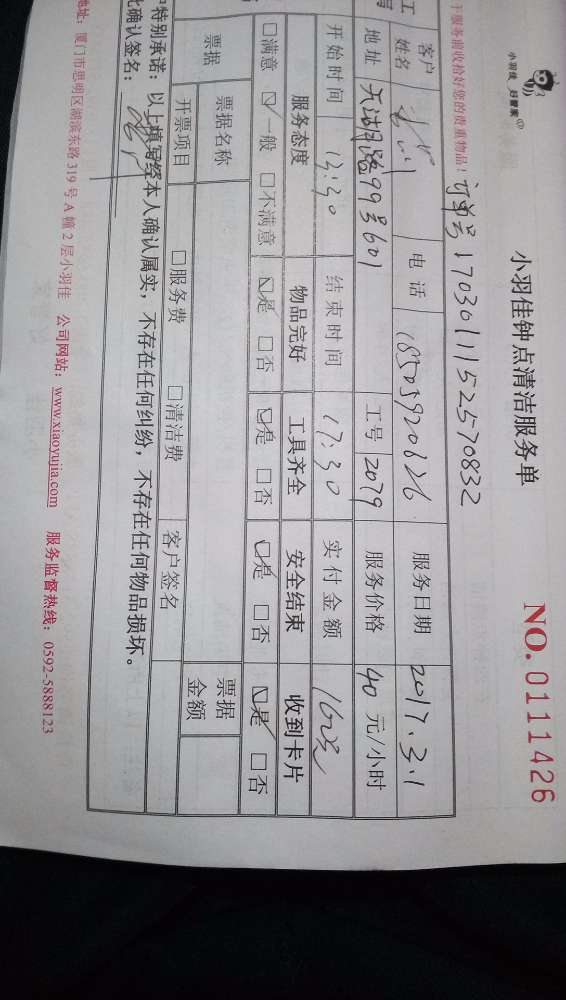 小羽佳 好管家
小羽佳钟点清洁服务单
NO. 0111426
于服务前收拾好您的贵重物品！ 订单号 1703011152570832
客户姓名 电话 18505920626 服务日期 2017.3.1
地址 天湖路99号601 工号 2079 服务价格 40 元/小时
开始时间 13:30 结束时间 17:30 实付金额 162元
服务态度 物品完好 工具齐全 安全结束 收到卡片
□满意 ☑一般 □不满意 ☑是 □否 ☑是 □否 ☑是 □否 ☑是 □否
票据 票据名称 票据金额
开票项目 □服务费 □清洁费 客户签名
特别承诺：以上填写经本人确认属实，不存在任何纠纷，不存在任何物品损坏。
此确认签名：
地址：厦门市思明区湖滨东路319号A幢2层小羽佳 公司网站：www.xiaoyujia.com 服务监督热线：0592-5888123